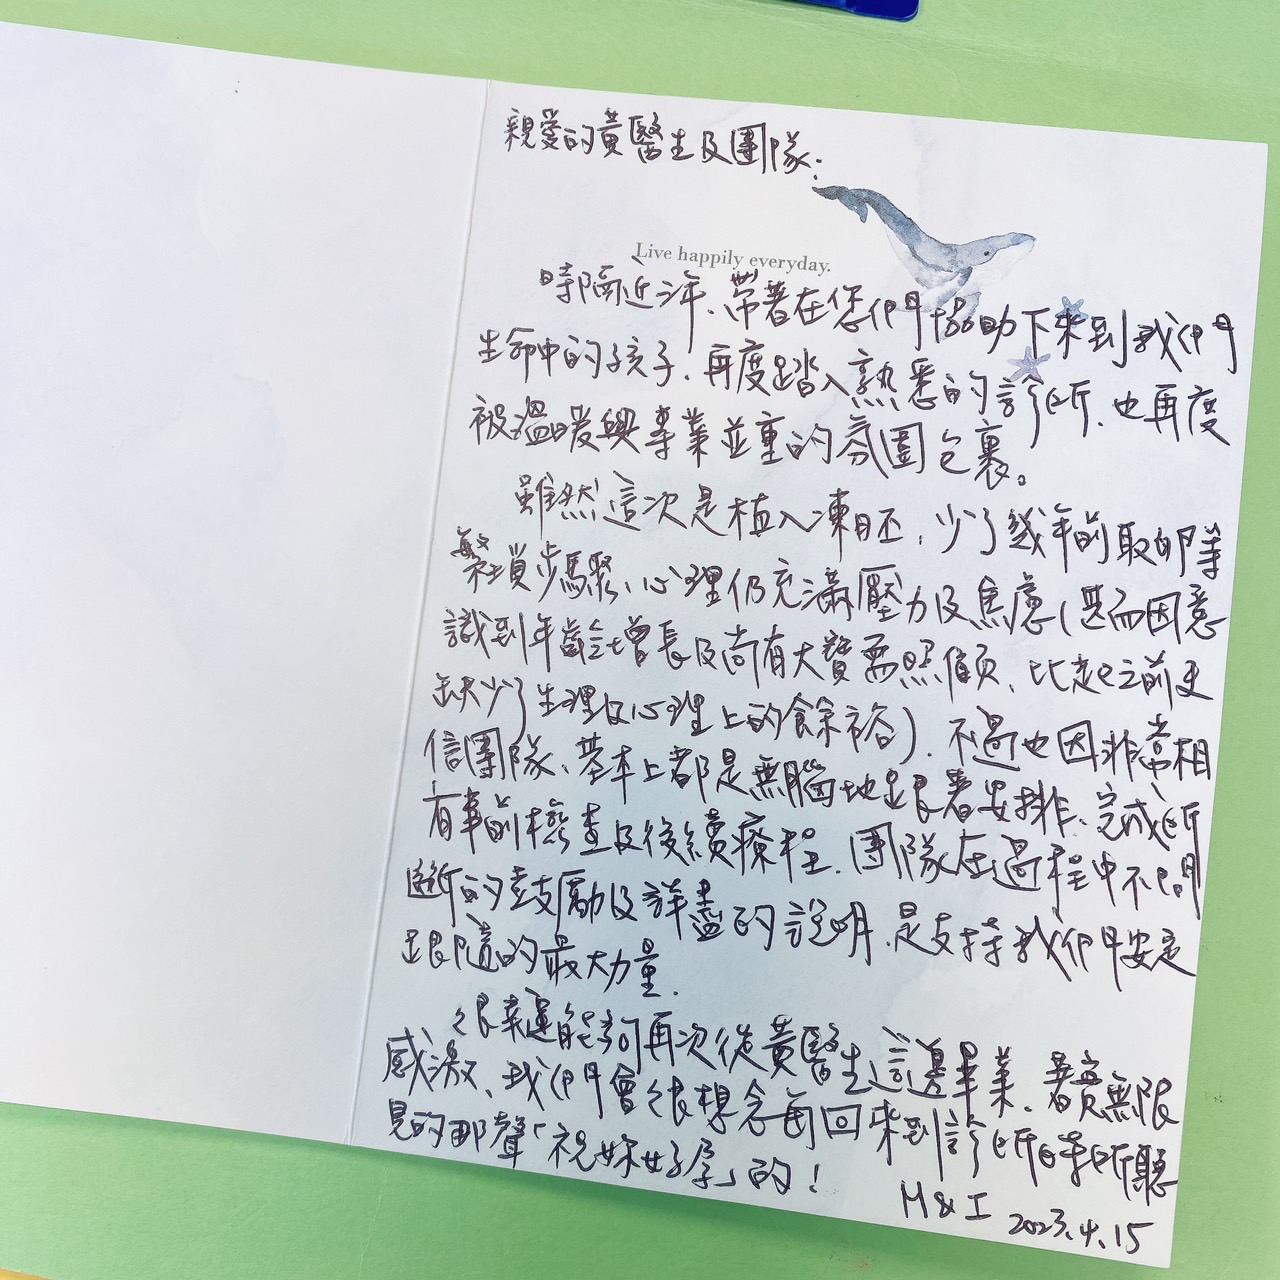 親愛的黃醫生及團隊:
Live happily everyday.
時隔近年、帶著在您們協助下來到我們
生命中的孩子、再度踏入熟悉的診所、也再度
被溫暖與專業並重的氛圍包裹。
雖然這次是植入凍胚,少了幾年前取卵等
繁瑣步驟、心理仍充滿壓力及焦慮(甚而因意
識到年齡增長及尚有大寶需照顧、比起之前更
缺少了生理及心理上的餘裕)、不過也因非常相
信團隊、基本上都是無腦地跟著安排、完成所
有事前檢查及後續療程、團隊在過程中不間
斷的鼓勵及詳盡的說明、是支持我們安定
跟隨的最大力量、
很幸運能夠再次從黃醫生這邊畢業、著實無限
感激、我們會很想念每回來到診所時所聽
見的那聲「祝妳好孕」的!
H & I
2023.4.15